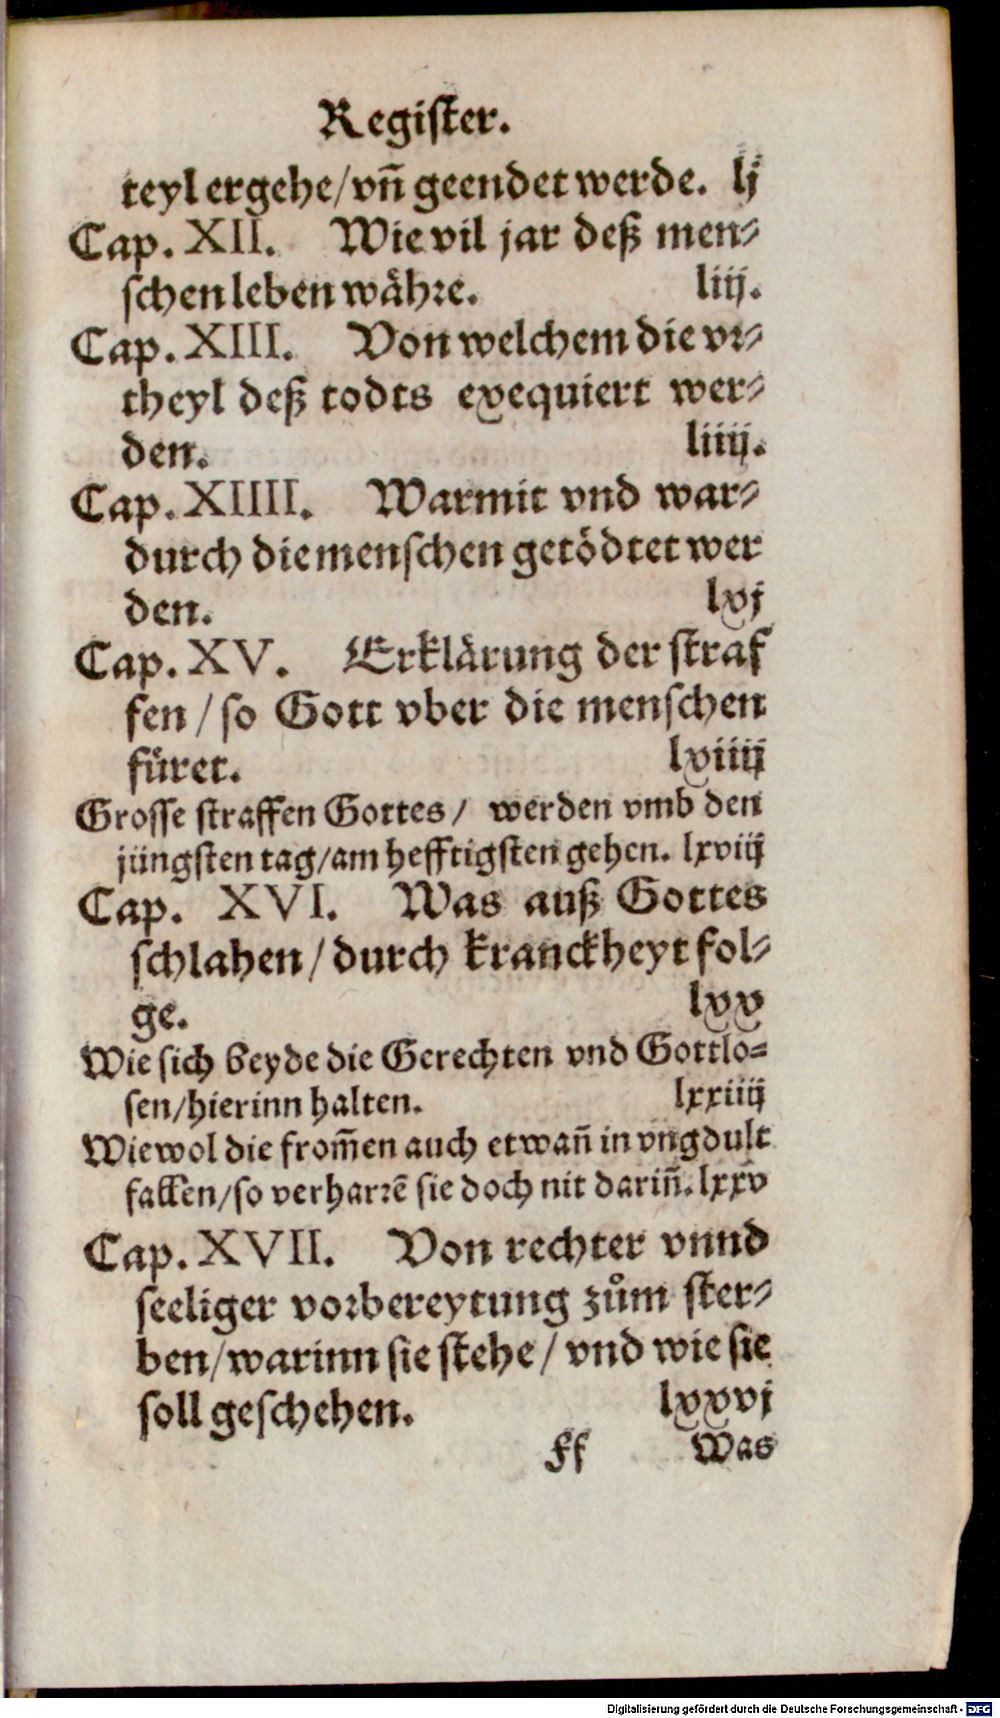 Register.
teyl ergehe/vñ geendet werde. lj
Cap. XII. Wie vil jar deß men⸗
schen leben wåhre. liij.
Cap. XIII. Von welchem die vr⸗
theyl deß todts exequiert wer⸗
den. liiij.
Cap. XIIII. Warmit vnd war⸗
durch die menschen getödtet wer
den. lxj
Cap. XV. Erklärung der straf
fen / so Gott vber die menschen
füret. lxiiij
Grosse straffen Gottes / werden vmb den
jüngsten tag/am hefftigsten gehen. lxviij
Cap. XVI. Was auß Gottes
schlahen / durch kranckheyt fol⸗
ge. lxx
Wie sich beyde die Gerechten vnd Gottlo⸗
sen/hierinn halten. lxxiiij
Wiewol die from̃en auch etwañ in vngdult
fallen/so verharrẽ sie doch nit dariñ. lxxv
Cap. XVII. Von rechter vnnd
seeliger vorbereytung zům ster⸗
ben/warinn sie stehe / vnd wie sie
soll geschehen. lxxvj
Ff Was
Digitalisierung gefördert durch die Deutsche Forschungsgemeinschaft - DFG